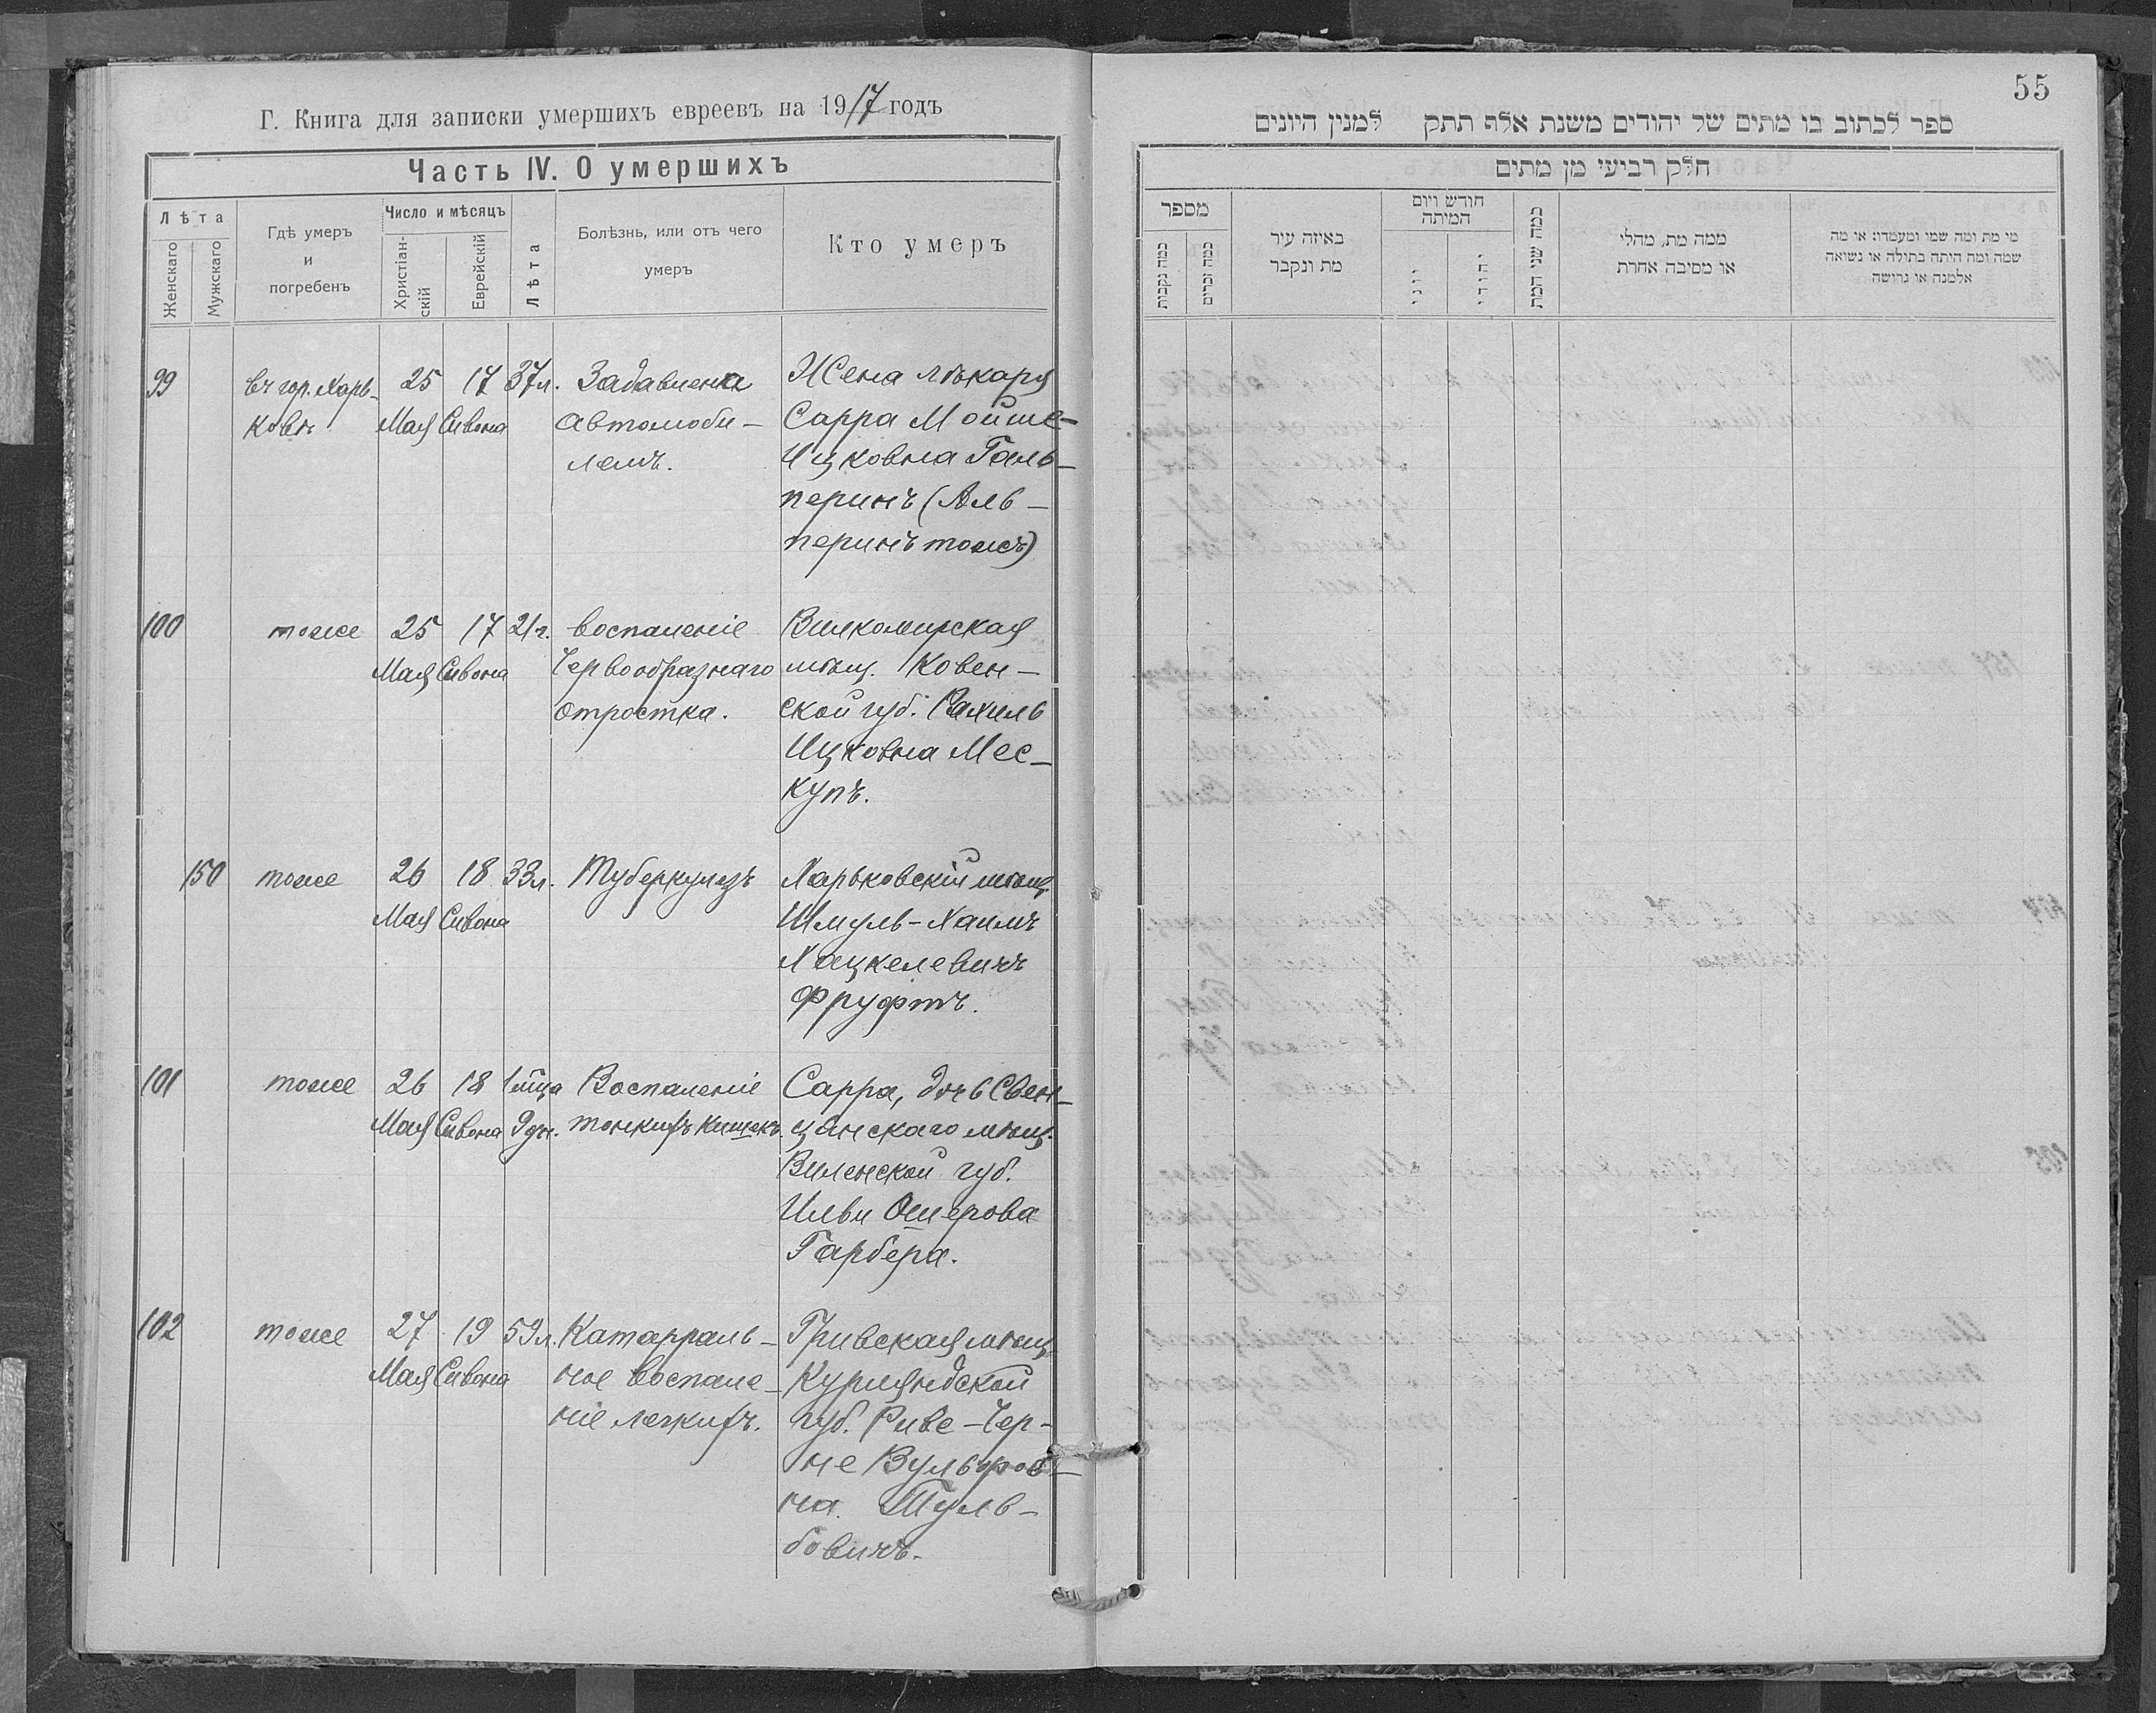 Г. Книга для записки умершихъ евреевъ на 1917 годъ
Часть IV. О умершихъ
Лѣта
Женскаго
Мужскаго
Гдѣ умеръ
и
погребенъ
Число и мѣсяцъ
Христіан-
скій
Еврейскій
Лѣта
Болѣзнь, или отъ чего
умеръ
Кто умеръ
99
въ гор. Харь-
ковѣ
25
Мая
17
Сивона
37 л.
Задавлена
автомоби-
лемъ.
Жена лѣкаря
Сарра Мойше-
Ицковна Галь-
перинъ (Аль-
перинъ тожъ)
100
тоже
25
Мая
17
Сивона
21 г.
воспаленіе
Червообразнаго
отростка.
Вилкомирская
мѣщ. Ковен-
ской губ. Рахиль
Ицковна Мес-
купъ.
150
тоже
26
Мая
18
Сивона
33 л.
Туберкулезъ
Харьковскій мѣщ.
Шмуль-Хаимъ
Хацкелевичъ
Фруфтъ.
101
тоже
26
Мая
18
Сивона
1 мца
9 дн.
Воспаленіе
тонкихъ кишекъ.
Сарра, дочь Свен-
цянскаго мѣщ.
Виленской губ.
Ильи Ошерова
Гарбера.
102
тоже
27
Мая
19
Сивона
59 л.
Катарраль-
ное воспале-
ніе легкихъ.
Гривская мѣщ.
Курляндской
губ. Риве-Чер-
не Вульфов-
на Шуль-
бовичъ.
55
ספר לכתוב בו מתים של יהודים משנת אלף תתק למנין היונים
חלק רביעי מן מתים
מספר
כמה נקבות
כמה זכרים
באיזה עיר
מת ונקבר
חודש ויום
המיתה
יוני
יהודי
כמה שני המת
ממה מת, מחלי
או מסיבה אחרת
מי מת ומה שמו ומעמדו: או מה
שמה ומה היתה בתולה או נשואה
אלמנה או גרושה